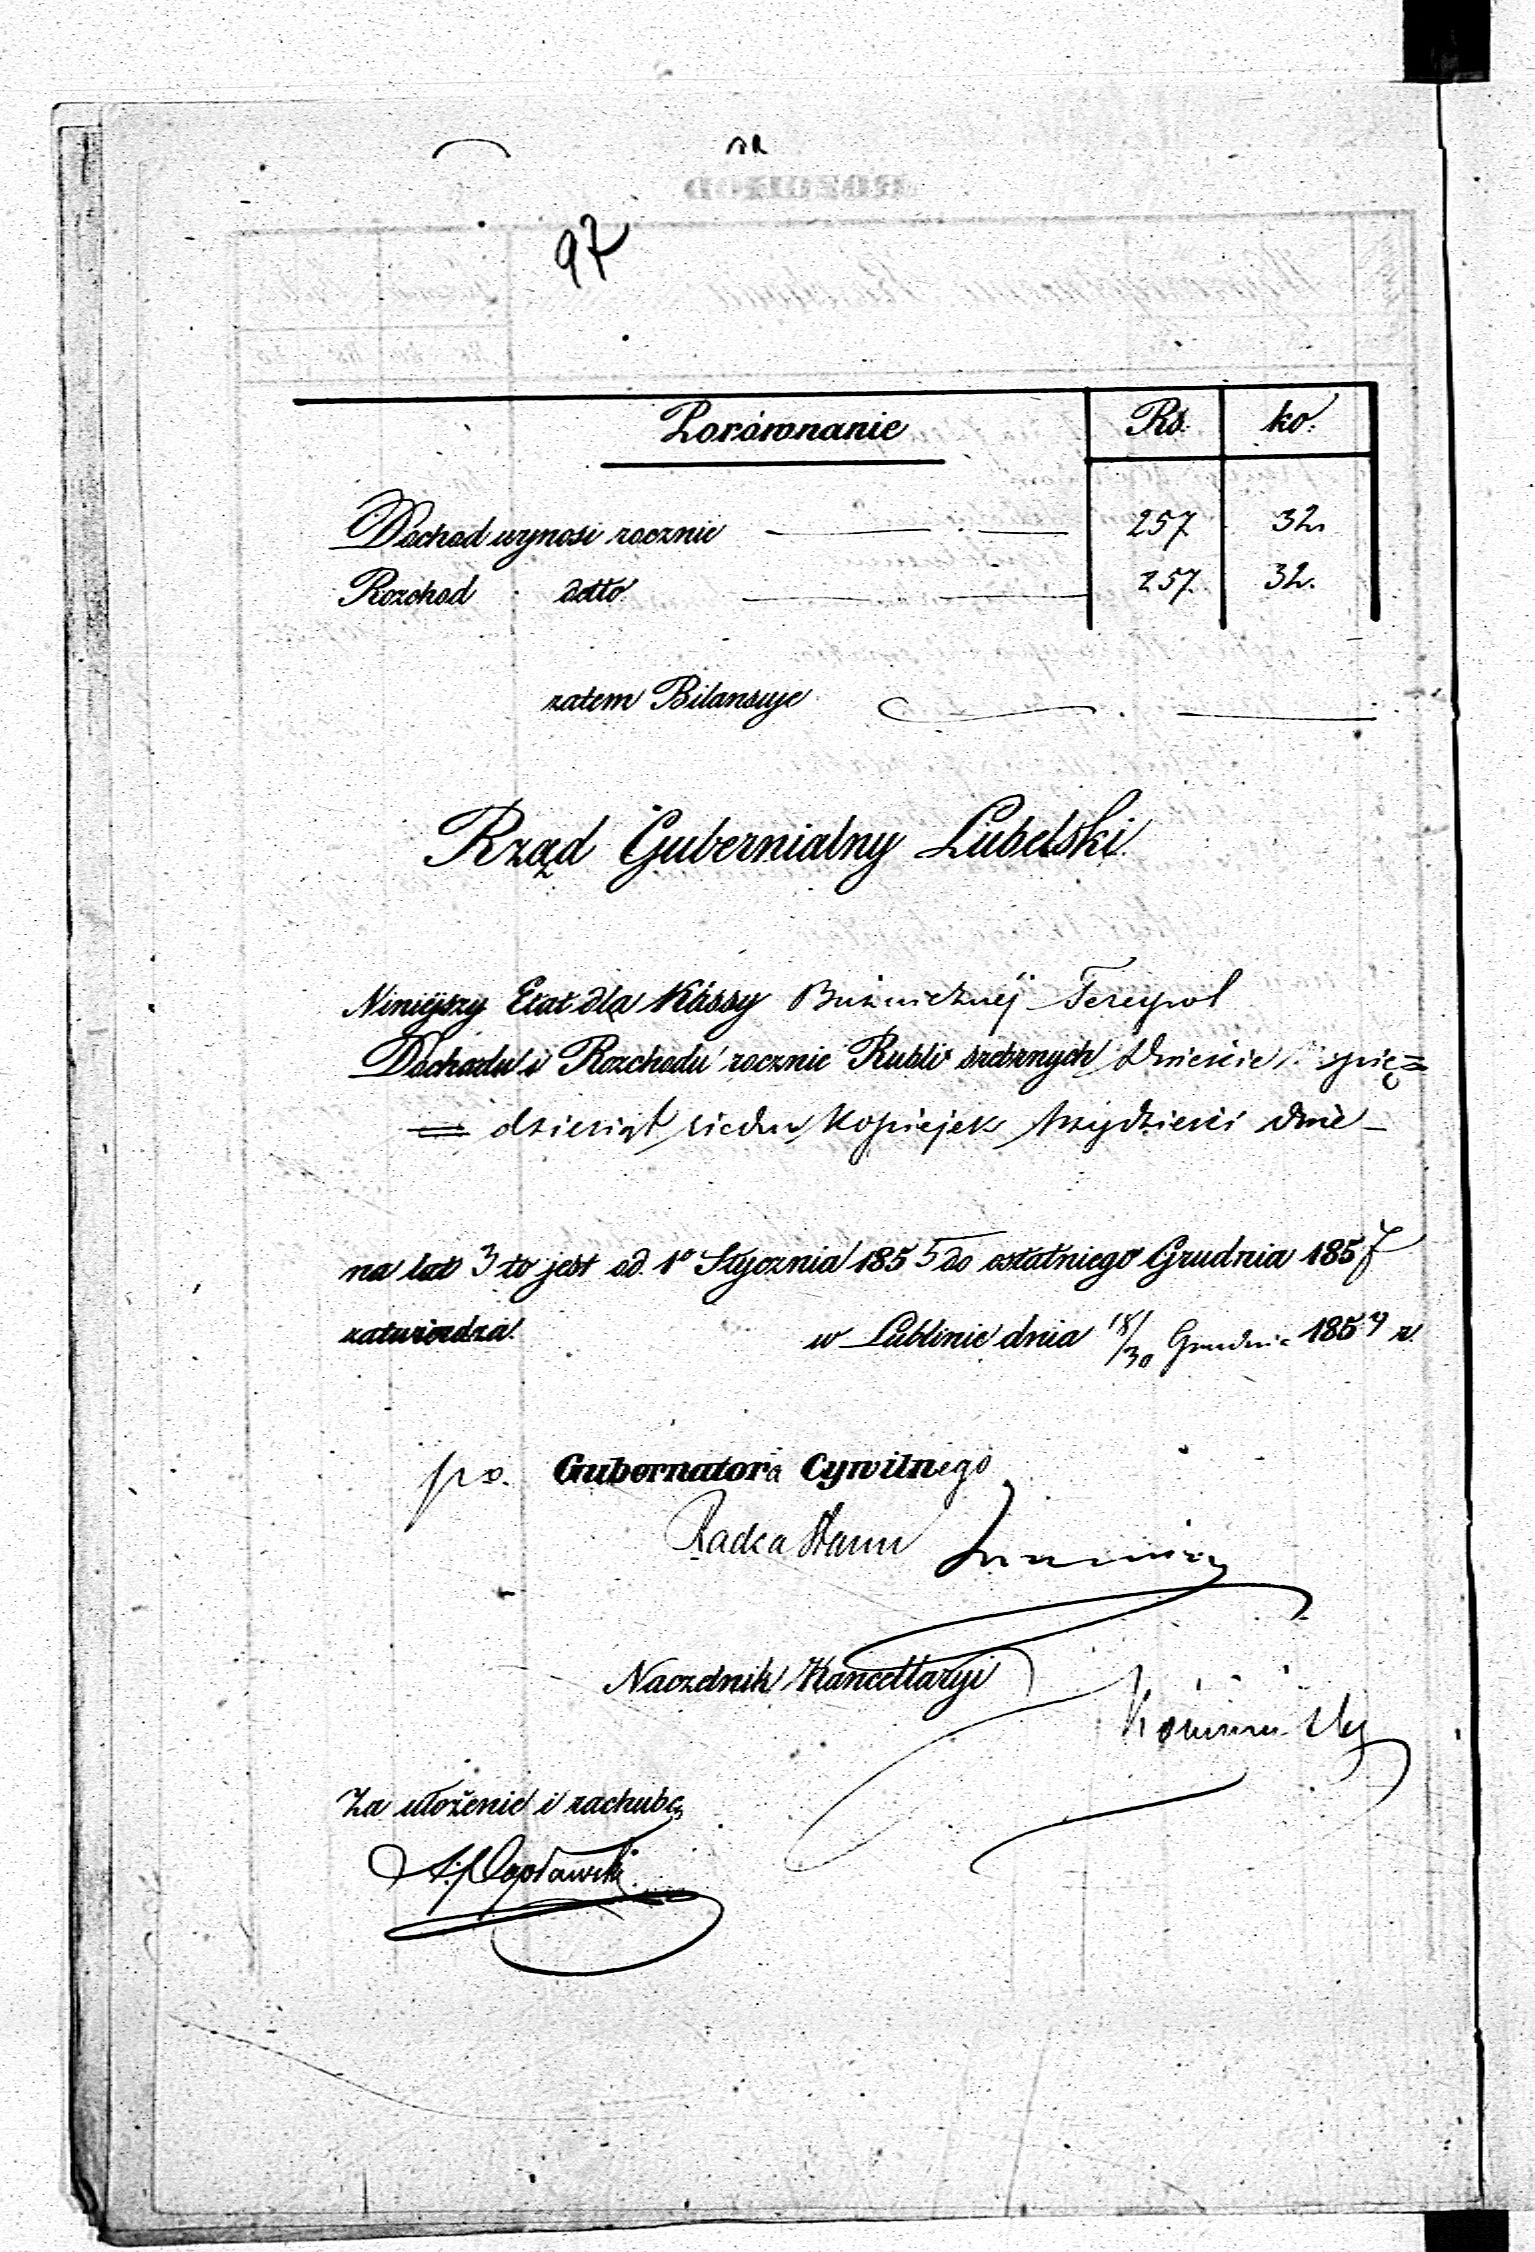 97
Porównanie Rs. ko.
Dochod wynosi rocznie 257 32.
Rozchod detto 257. 32.
zatem Bilansuje
Rząd Gubernialny Lubelski.
Ninieyszy Etat dla Kassy Bużnicznéj Terespol
Dochodu i Rozchodu rocznie Rubli srebrnych dwieście pięć=
= dziesiąt siedm Kopiejek trzydzieści dwie –
na lat 3 to jest od 1º Stycznia 1855 do ostatniego Grudnia 1857
zatwierdza. w Lublinie dnia 18/30 Grudnia 1854 r.
po. Gubernatora Cywilnego
Radca Stanu
Naczelnik Kancellaryi
Za ułożenie i rachubę